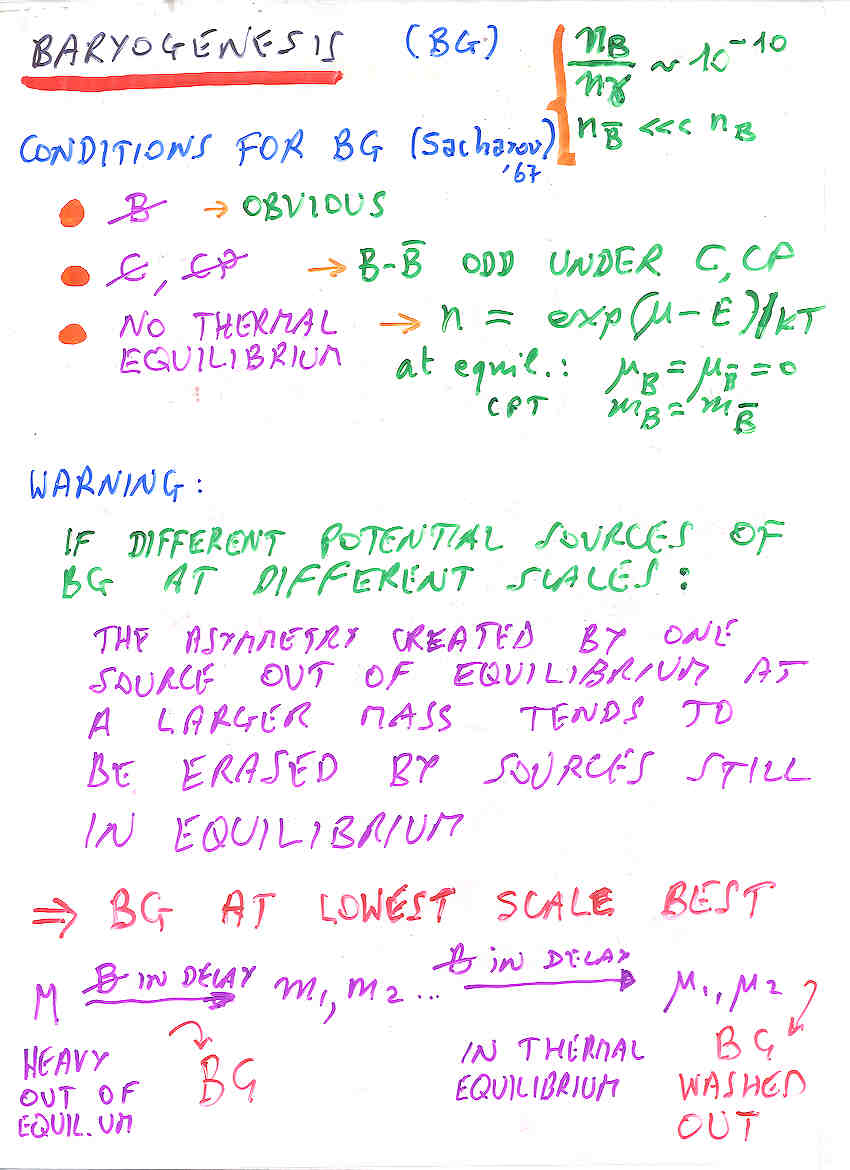 BARYOGENESIS (BG) { n_B/n_γ ~ 10^-10
n_B̄ <<< n_B
CONDITIONS FOR BG (Sacharov)
'67
● B̸ → OBVIOUS
● C̸, C̸P̸ → B-B̄ ODD UNDER C, CP
● NO THERMAL EQUILIBRIUM → n = exp(μ-E)/kT
at equil.: μ_B = μ_B̄ = 0
CPT m_B = m_B̄
WARNING:
IF DIFFERENT POTENTIAL SOURCES OF
BG AT DIFFERENT SCALES:
THE ASYMMETRY CREATED BY ONE
SOURCE OUT OF EQUILIBRIUM AT
A LARGER MASS TENDS TO
BE ERASED BY SOURCES STILL
IN EQUILIBRIUM
⇒ BG AT LOWEST SCALE BEST
M B̸ IN DECAY → m1, m2 ... B̸ in DECAY → μ1, μ2
HEAVY
OUT OF
EQUIL.UM
BG
IN THERMAL
EQUILIBRIUM
BG
WASHED
OUT